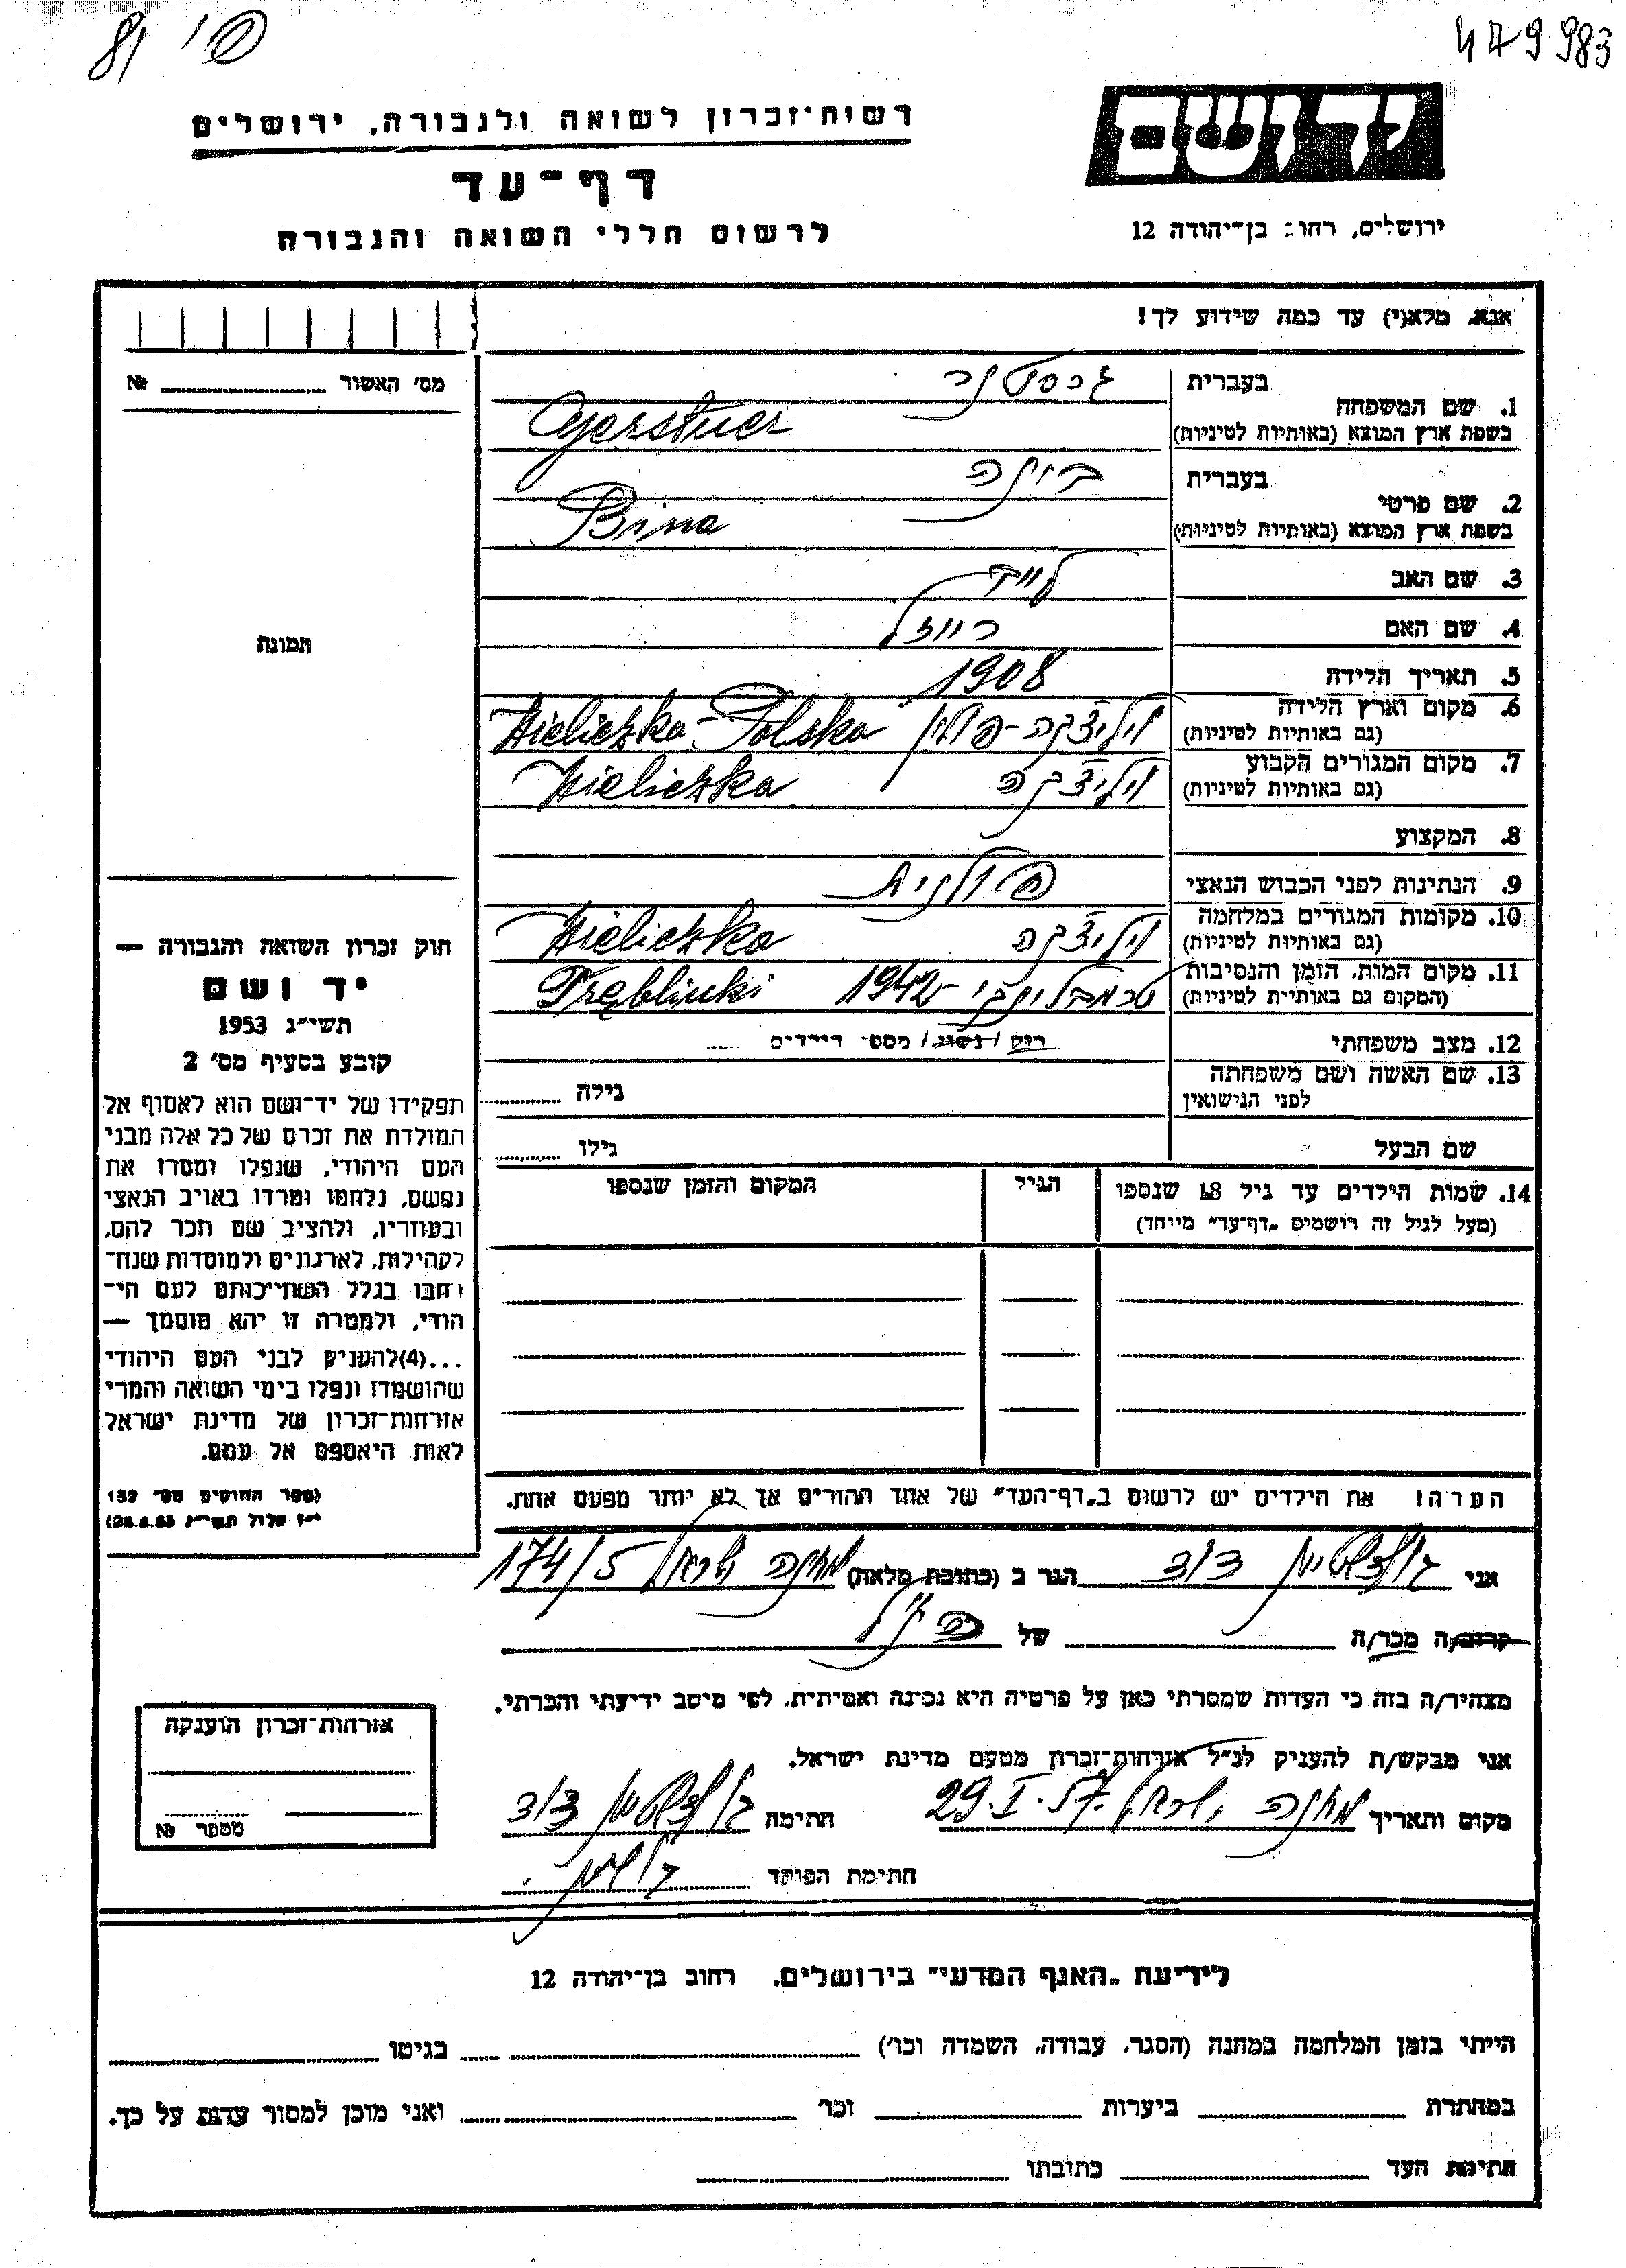 479983
יד ושם
רשות־זכרון לשואה ולגבורה, ירושלים
דף־עד
לרשום חללי השואה והגבורה
ירושלים, רחוב בן־יהודה 12
אנא, מלא(י) עד כמה שידוע לך!
מס׳ האשור № 
תמונה
1. שם המשפחה
בעברית גרסטנר
בשפת ארץ המוצא (באותיות לטיניות) Gerstner
2. שם פרטי
בעברית בינה
בשפת ארץ המוצא (באותיות לטיניות) Bina
3. שם האב
4. שם האם רייזל
5. תאריך הלידה 1908
6. מקום וארץ הלידה
(גם באותיות לטיניות) ויליצ׳קה-פולין Wieliczka-Polska
7. מקום המגורים הקבוע
(גם באותיות לטיניות) ויליצ׳קה Wieliczka
8. המקצוע
9. הנתינות לפני הכבוש הנאצי פולנית
10. מקומות המגורים במלחמה
(גם באותיות לטיניות) ויליצ׳קה Wieliczka
11. מקום המות, הזמן והנסיבות
(המקום גם באותיות לטיניות) טרמבלינקי 1942 Trębliuki
12. מצב משפחתי רוק / נשוי / מספר הילדים
13. שם האשה ושם משפחתה
לפני הנישואין גילה
שם הבעל גילו
14. שמות הילדים עד גיל 18 שנספו
(מעל לגיל זה רושמים „דף־עד״ מייוחד)
הגיל
המקום והזמן שנספו
חוק זכרון השואה והגבורה —
יד ושם
תשי״ג 1953
קובע בסעיף מס׳ 2
תפקידו של יד־ושם הוא לאסוף אל
המולדת את זכרם של כל אלה מבני
העם היהודי, שנפלו ומסרו את
נפשם, נלחמו ומרדו באויב הנאצי
ובעוזריו, ולהציב שם וזכר להם,
לקהילות, לארגונים ולמוסדות שנח־
רבו בגלל השתייכותם לעם הי־
הודי, ולמטרה זו יהא מוסמך —
...(4)להעניק לבני העם היהודי
שהושמדו ונפלו בימי השואה והמרי
אזרחות־זכרון של מדינת ישראל
לאות היאספם אל עמם.
(ספר החוקים מס׳ 132
י״ז אלול תשי״ג 28.8.53)
הערה! את הילדים יש לרשום ב„דף־העד״ של אחד ההורים אך לא יותר מפעם אחת.
אני גולדשטיין דוד הגר ב (כתובת מלאה) מחנה ישראל 174/5
קרוב/ה מכר/ה של הנ״ל
מצהיר/ה בזה כי העדות שמסרתי כאן על פרטיה היא נכונה ואמיתית, לפי מיטב ידיעתי והכרתי.
אני מבקש/ת להעניק לנ״ל אזרחות־זכרון מטעם מדינת ישראל.
מקום ותאריך מחנה ישראל 29.I.57. חתימה גולדשטיין דוד
חתימת הפוקד
אזרחות־זכרון הוענקה
מספר №
לידיעת „האגף המדעי״ בירושלים, רחוב בן־יהודה 12
הייתי בזמן המלחמה במחנה (הסגר, עבודה, השמדה וכו׳) בגיטו
במחתרת ביערות וכו׳ ואני מוכן למסור עדות על כך.
חתימת העד כתובתו